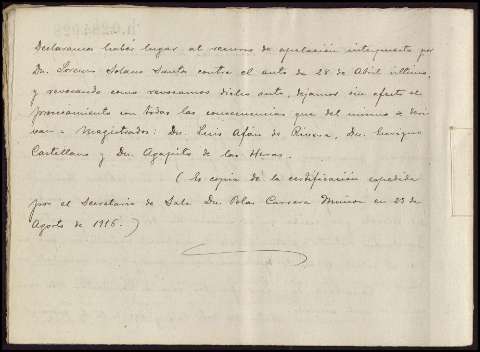 Declaramos haber lugar al recurso de apelación interpuesto por
Dn. Lorenzo Solano Santos contra el auto de 28 de Abril último,
y revocando como revocamos dicho auto, dejamos sin efecto el
procesamiento con todas las consecuencias que del mismo se deri-
van = Magistrados: Dn. Luis Afán de Rivera, Dn. Enrique
Castellano y Dn. Agapito de las Heras.
(Es copia de la certificación expedida
por el Secretario de Sala Dn. Carrera en 23 de
Agosto de 1916.)